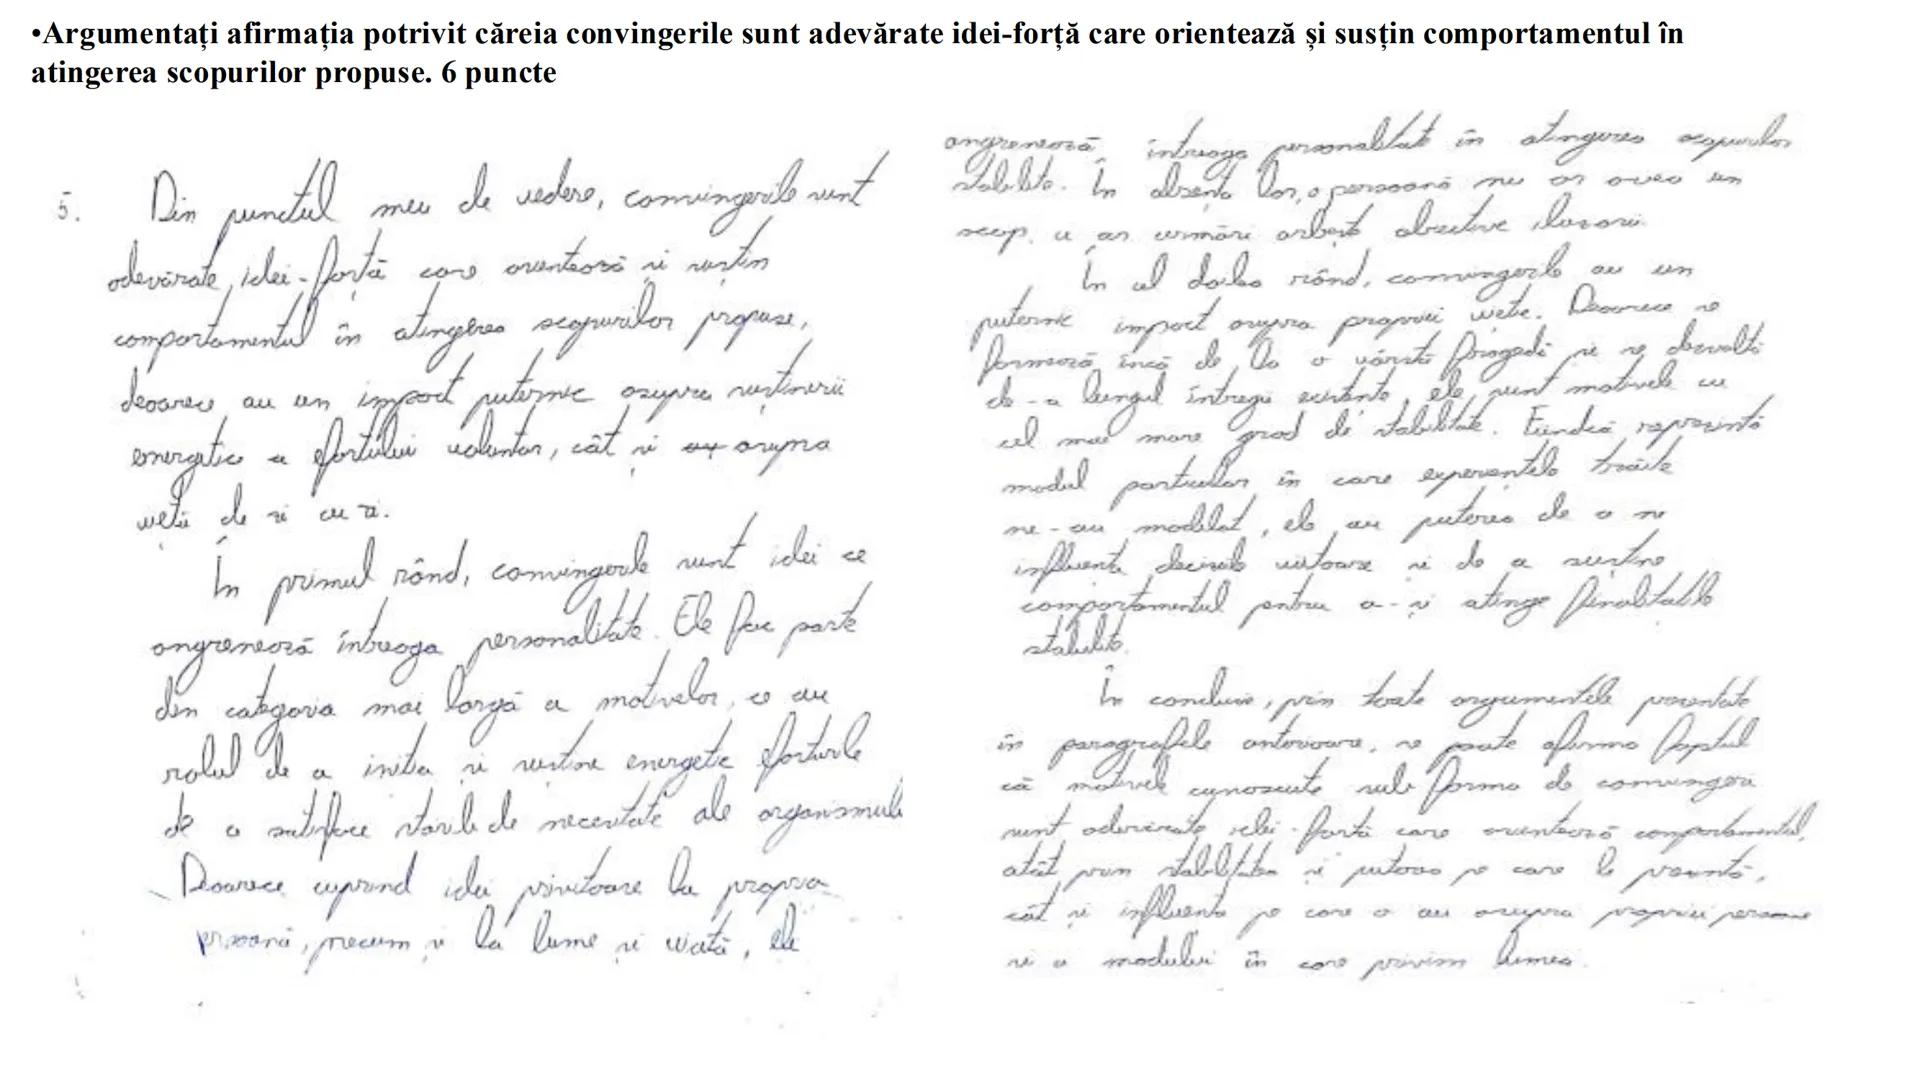 •Argumentați afirmația potrivit căreia convingerile sunt adevărate idei-forță care orientează și susțin comportamentul în
atingerea scopurilor propuse. 6 puncte
5. Din punctul meu de vedere, convingerile sunt
adevărate idei-forță care orientează și susțin
comportamentul în atingerea scopurilor propuse,
deoarece au un impact puternic asupra susținerii
energetice a efortului voluntar, cât și asupra
vieții de zi cu zi.
În primul rând, convingerile sunt idei ce
angrenează întreaga personalitate. Ele fac parte
din categoria mai largă a motivelor, ce au
rolul de a iniția și susține energetic eforturile
de a satisface stările de necesitate ale organismului
Deoarece cuprind idei privitoare la propria
persoană, precum și la lume și viață, ele
angrenează întreaga personalitate în atingerea scopurilor
stabilite. În absența lor, o persoană nu ar avea un
scop, ci ar urmări orbește obiective iluzorii.
În cel doilea rând, convingerile au un
puternic impact asupra propriei vieți. Deoarece se
formează încă de la o vârstă fragedă și se dezvoltă
de-a lungul întregii existențe, ele sunt motivele cu
cel mai mare grad de stabilitate. Fiindcă reprezintă
modul particular în care experiențele trăite
ne-au modelat, ele au puterea de a ne
influența deciziile viitoare și de a susține
comportamentul pentru a-și atinge finalitățile
stabilite.
În concluzie, prin toate argumentele prezentate
în paragrafele anterioare, se poate afirma faptul
că motivele cunoscute sub forma de convingeri
sunt adevărate idei-forță care orientează comportamentul,
atât prin stabilitatea și puterea pe care le prezintă,
cât și influența pe care o au asupra propriei persoane
și a modului în care privim lumea.